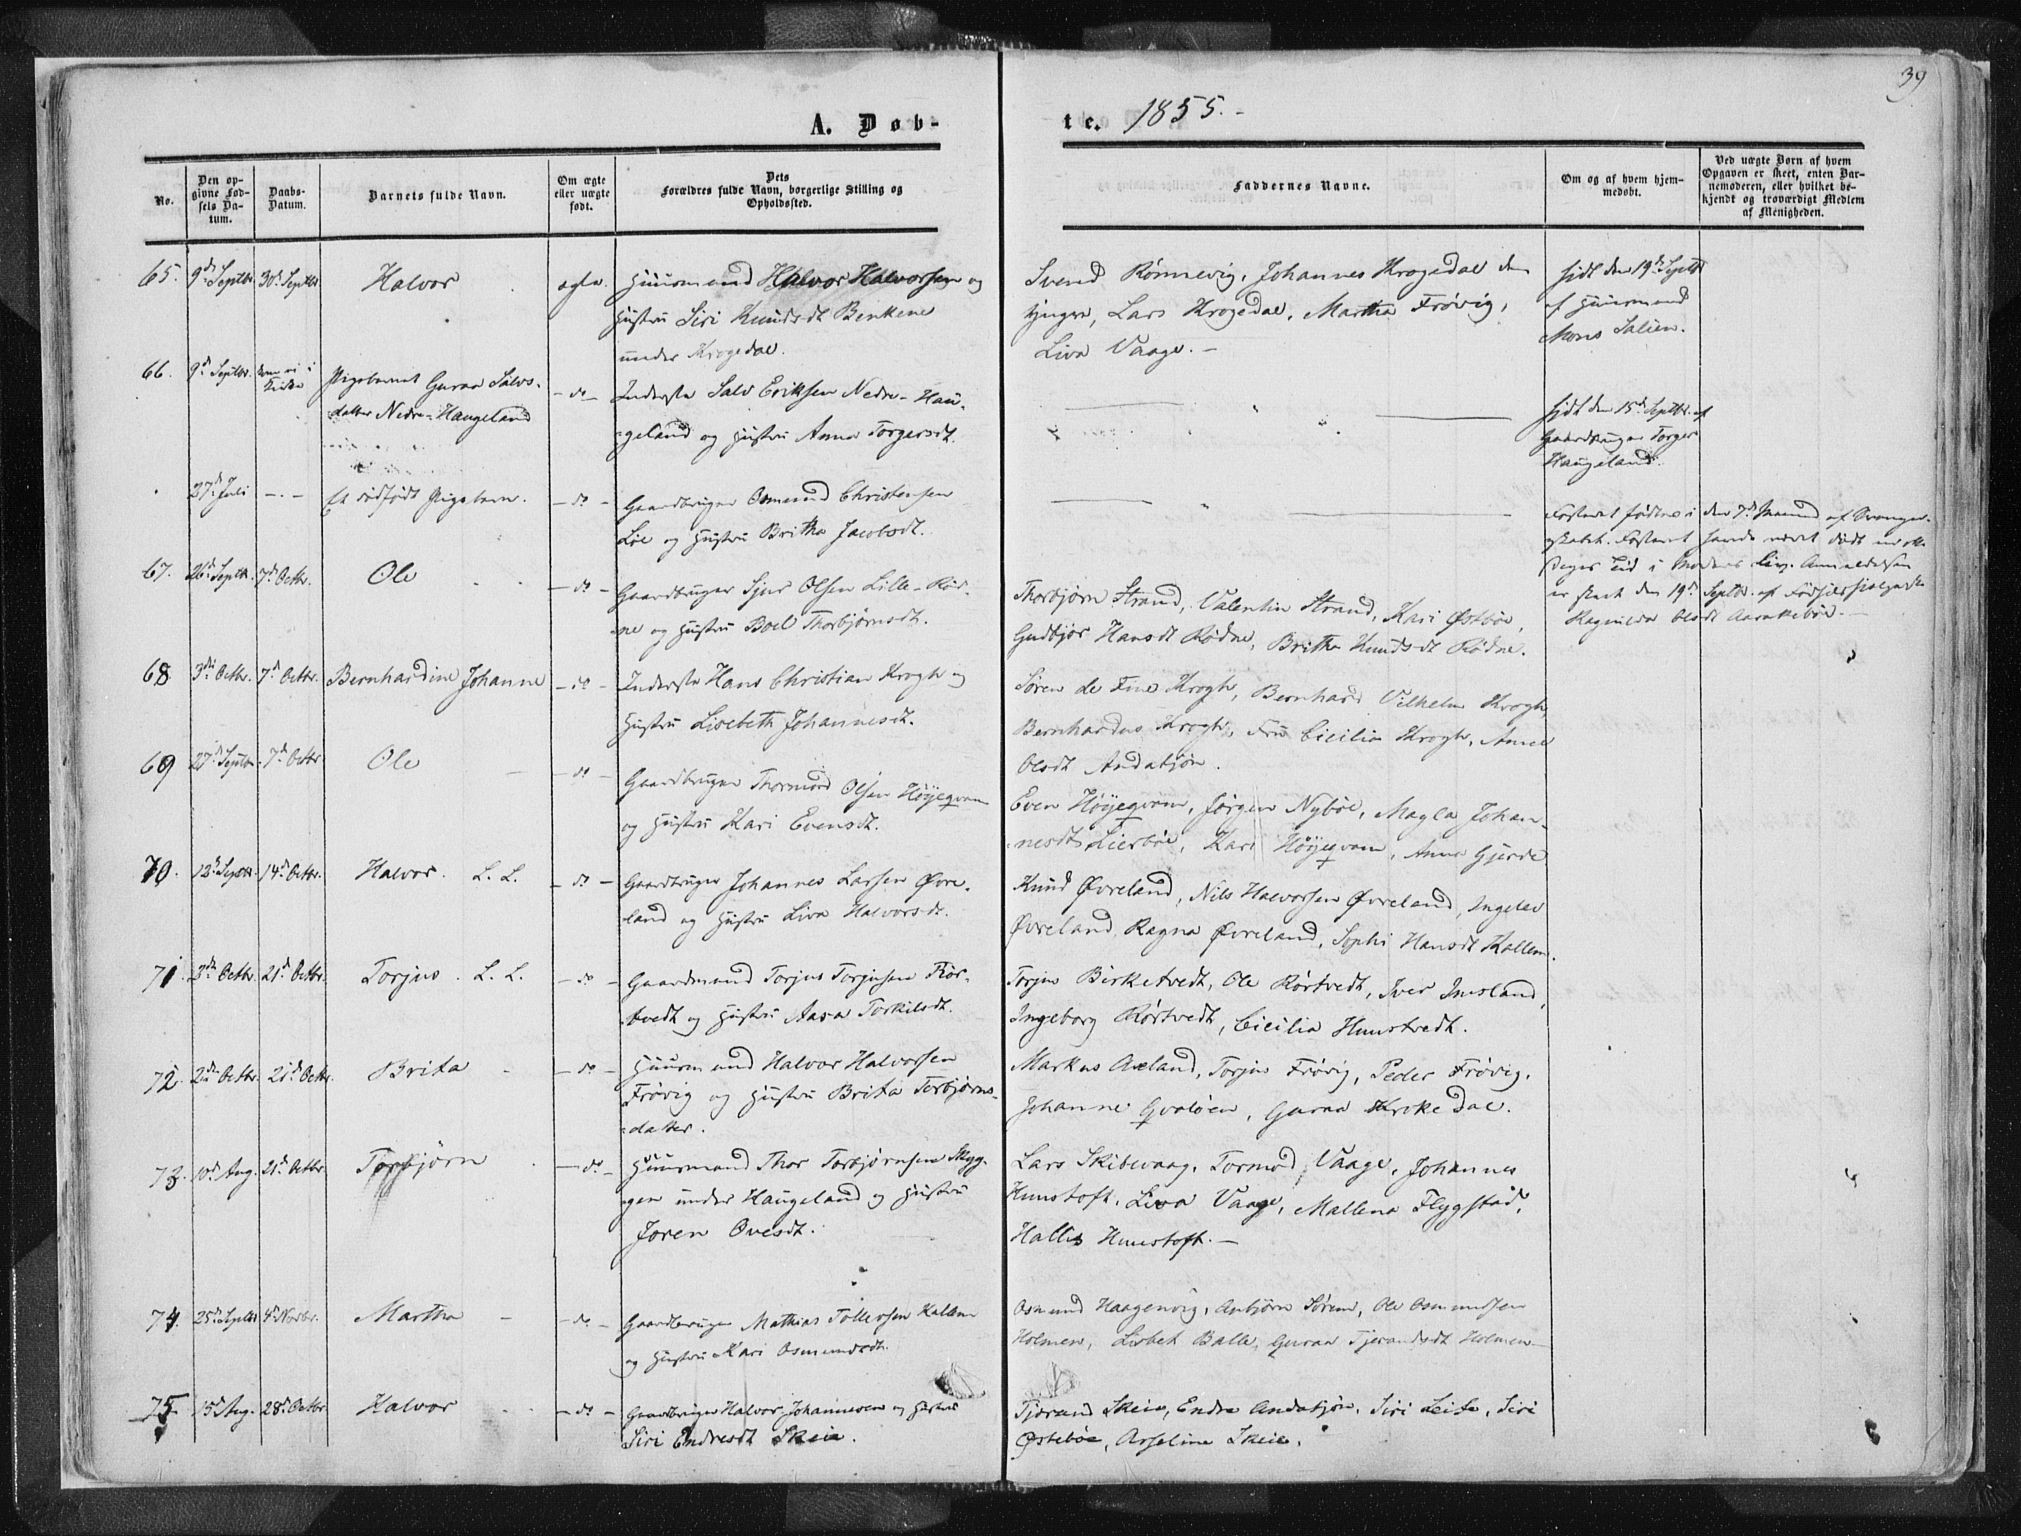 39
A. Døb-
te. 1855.-
No.
Den op-
givne Fød-
sels Da-
tum.
Daabs-
Datum.
Barnets fulde Navn.
Om ægte
eller uægte
født.
Dets
Forældres fulde Navn, borgerlige Stilling og
Opholdssted.
Faddernes Navne.
Om og af hvem hjem-
medøbt.
Ved uægte Børn af hvem
Opgaven er skeet, enten Bar-
nemoderen, eller hvilket be-
kjendt og troværdigt Medlem
af Menigheden.
65. 9de Septbr. 30de Septbr Halvor ægte. Huusmand Halvor Halvorsen og
Hustru Siri Knudsdt Benkene
under Krogedal.
Svend Rönnevig, Johannes Krogedal den
yngre, Lars Krogedal, Martha Frövig,
Liva Vaage. —
hjdt den 19de Septbr
af Huusmand
Mons Salien.
66. 9de Septbr. Kom ei i
Kirke
Pigebarnet Guraa Salvs-
datter Nedre-Haugeland
- do - Inderste Salv Eriksen Nedre-Hau-
geland og Hustru Anna Torgersdt.
hjdt den 15de Septbr. af
Gaardbruger Torger
Haugeland.
27de Juli - . - Et dødfødt Pigebarn. - do - Gaardbruger Osmund Christensen
Löe og Hustru Britha Jacobsdt.
Fosteret födtes i den 7de Maaned af Svanger-
skabet. Fosteret havde været dödt en otte
Dages Tid i Moders Liv. Anmeldelsen
er skeet den 19de Septbr. af Födselshjelperske
Ragnilda Olsdt Aarekeböe.
67. 26de Septbr. 7de Octbr. Ole - do - Gaardbruger Sjur Olsen Lille-Röd-
ne og Hustru Boel Thorbjörnsdt.
Thorbjörn Strand, Valentin Strand, Kari Østböe,
Gudbjör Hansdt Rödne, Britha Knudsdt Rödne.
68 3die Octbr. 7de Octbr. Bernhardine Johanne - do - Inderste Hans Christian Krogh og
Hustru Lisebeth Johannesdt.
Sören de Fine Krogh, Bernhard Vilhelm Krogh,
Bernhardus Krogh, Fru Cicilia Krogh, Anne
Olsdt Andasjön.
69 27de Septbr 7de Octbr Ole - do - Gaardbruger Thormod Olsen Höyeqvam
og Hustru Kari Evensdt.
Even Höyeqvam, Jörgen Nyböe, Magla Johan-
nesdt Lierböe, Kari Höyeqvam, Anna Gjerde
70. 12te Septbr. 14de Octbr. Halvor. L. L. - do - Gaardbruger Johannes Larsen Øvre-
land og Hustru Liva Halvorsdt.
Knud Øvreland, Nils Halvorsen Øvreland, Ingelev
Øvreland, Ragna Øvreland, Sophi Hansdt Kallem.
71. 3die Octbr. 21de Octbr. Torjus. L. L. - do - Gaardmand Torjus Torjusen Rör-
tvedt og Hustru Aasa Torkilsdt.
Torjus Birketvedt, Ole Rörtvedt, Iver Imsland,
Ingeborg Rörtvedt, Cicilia Hunstvedt.
72. 2den Octbr. 21de Octbr. Brita - do - Huusmand Halvor Halvorsen
Frövig og Hustru Brita Torbjörns-
datter.
Markus Axland, Torjus Frövig, Peder Frövig,
Johanne Qvalöen, Guraa Krokedal.
73. 10de Aug. 21de Octbr. Torbjörn - do - Huusmand Thor Torbjörnsen Skyg-
gen under Haugeland og Hustru
Joren Ovesdt.
Lars Skibevaag, Tormod Vaage, Johannes
Hunstoft, Liva Vaage, Mallena Flygstad,
Hallis Hunstoft. —
74. 25de Septbr 4de Novbr. Martha - do - Gaardbruger Mathias Tollevsen Kallem
og Hustru Kari Osmundsdt.
Osmund Haagenvig, Anbjörn Sörem, Ole Osmundsen
Holmen, Lisbet Balle, Guraa Tjerandsdt Holmen
75. 15de Aug. 28de Octbr Halvor - do - Gaardbruger Halvor Johannesen og Hustru
Siri Endresdt Skeie.
Tjerand Skeie, Endre Andasjön, Siri Leite, Siri
Østeböe, Aseline Skeie.